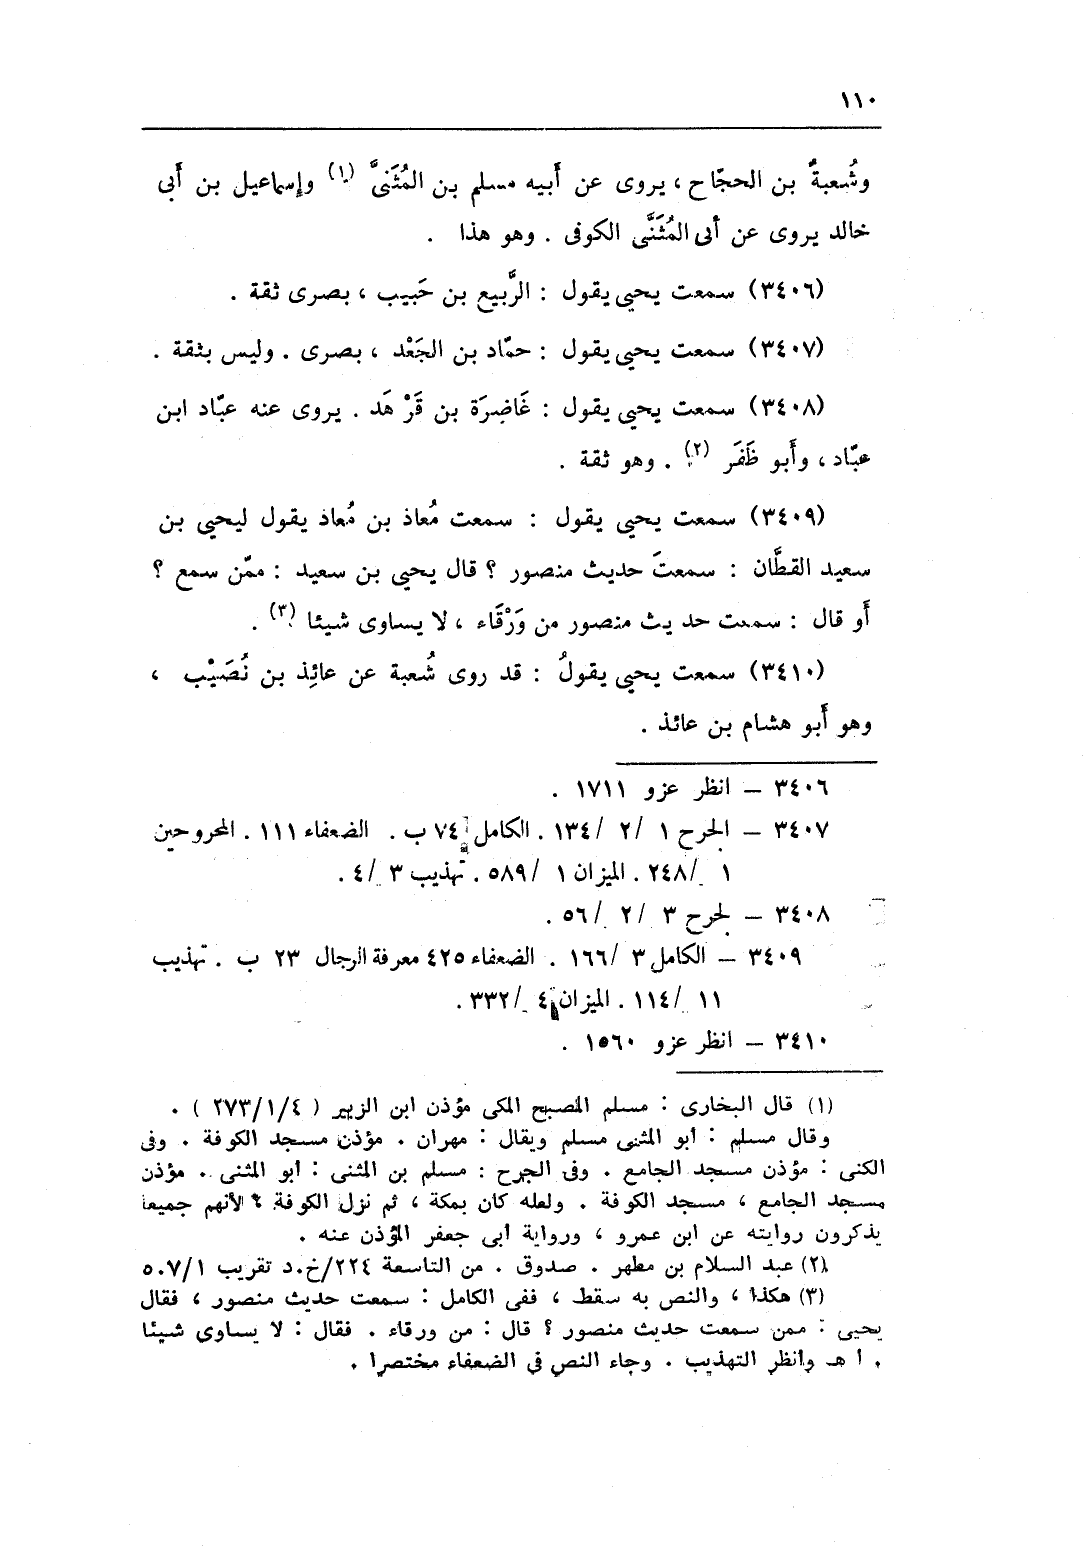 ١١٠
وشُعبةُ بن الحجّاج ، يروى عن أَبيه مسلم بن المُثَنىَّ (١) وإسماعيل بن أَبى
خالد يروى عن أبى المُثَنَّى الكوفى . وهو هذا .
(٣٤٠٦) سمعت يحيى يقول : الرَّبيع بن حَبيب ، بصرى ثقة .
(٣٤٠٧) سمعت يحيى يقول : حمّاد بن الجَعْد ، بصرى . وليس بثقة .
(٣٤٠٨) سمعت يحيى يقول : غَاضِرَة بن قَرْهَد . يروى عنه عبّاد ابن
عبّاد ، وأَبو ظَفَر (٢) . وهو ثقة .
(٣٤٠٩) سمعت يحيى يقول : سمعت مُعاذ بن مُعاذ يقول ليحيى بن
سعيد القطَّان : سمعتَ حديث منصور ؟ قال يحيى بن سعيد : ممّن سمع ؟
أَو قال : سمعت حديث منصور من وَرْقَاء ، لا يساوى شيئا (٣) .
(٣٤١٠) سمعت يحيى يقولُ : قد روى شُعبة عن عائِذ بن نُصَيْب ،
وهو أَبو هشام بن عائذ .
٣٤٠٦ – انظر عزو ١٧١١ .
٣٤٠٧ – الجرح ١ /٢ /١٣٤ . الكامل ٧٤ ب . الضعفاء ١١١ . المجروحين
١ /٢٤٨ . الميزان ١ /٥٨٩ . تهذيب ٣ /٤ .
٣٤٠٨ – لجرح ٣ /٢ /٥٦ .
٣٤٠٩ – الكامل ٣ /١٦٦ . الضعفاء ٤٢٥ معرفة الرجال ٢٣ ب . تهذيب
١١ /١١٤ . الميزان ٤ /٣٣٢ .
٣٤١٠ – انظر عزو ١٥٦٠ .
(١) قال البخارى : مسلم المصبح المكى مؤذن ابن الزبير ( ٢٧٣/١/٤ ) .
وقال مسلم : أبو المثنى مسلم ويقال : مهران . مؤذن مسجد الكوفة . وفى
الكنى : مؤذن مسجد الجامع . وفى الجرح : مسلم بن المثنى : أبو المثنى . مؤذن
مسجد الجامع ، مسجد الكوفة . ولعله كان بمكة ، ثم نزل الكوفة ؟ لأنهم جميعا
يذكرون روايته عن ابن عمرو ، ورواية أبى جعفر المؤذن عنه .
(٢) عبد السلام بن مطهر . صدوق . من التاسعة ٢٢٤/خ.د تقريب ٥٠٧/١
(٣) هكذا ، والنص به سقط ، ففى الكامل : سمعت حديث منصور ، فقال
يحيى : ممن سمعت حديث منصور ؟ قال : من ورقاء . فقال : لا يساوى شيئا
. ا هـ وانظر التهذيب . وجاء النص فى الضعفاء مختصرا .